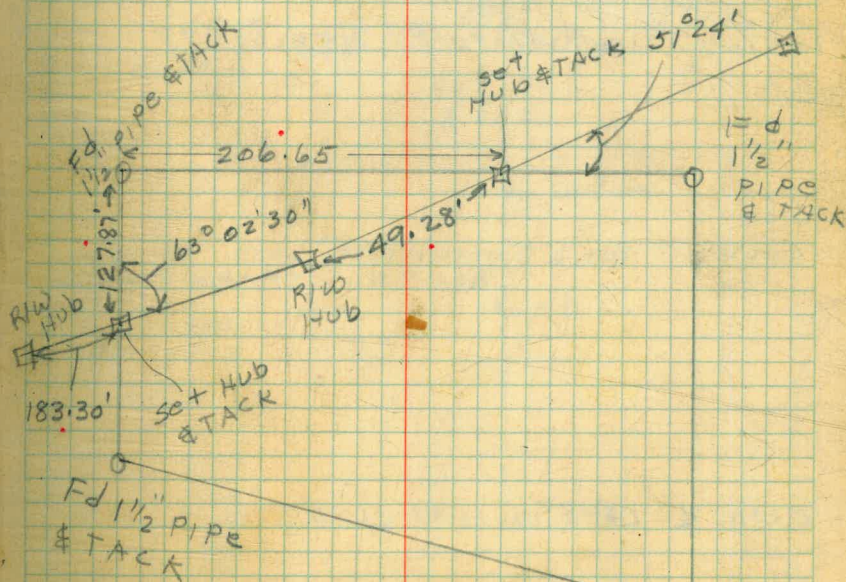 Fd
1 1/2" pipe & TACK
206.65
set
HUB & TACK
51° 24'
Fd
1 1/2"
PIPE
& TACK
127.87'
63° 02' 30"
49.28'
R/W
HUB
R/W
HUB
183.30'
Set HUB
& TACK
Fd 1 1/2" PIPE
& TACK